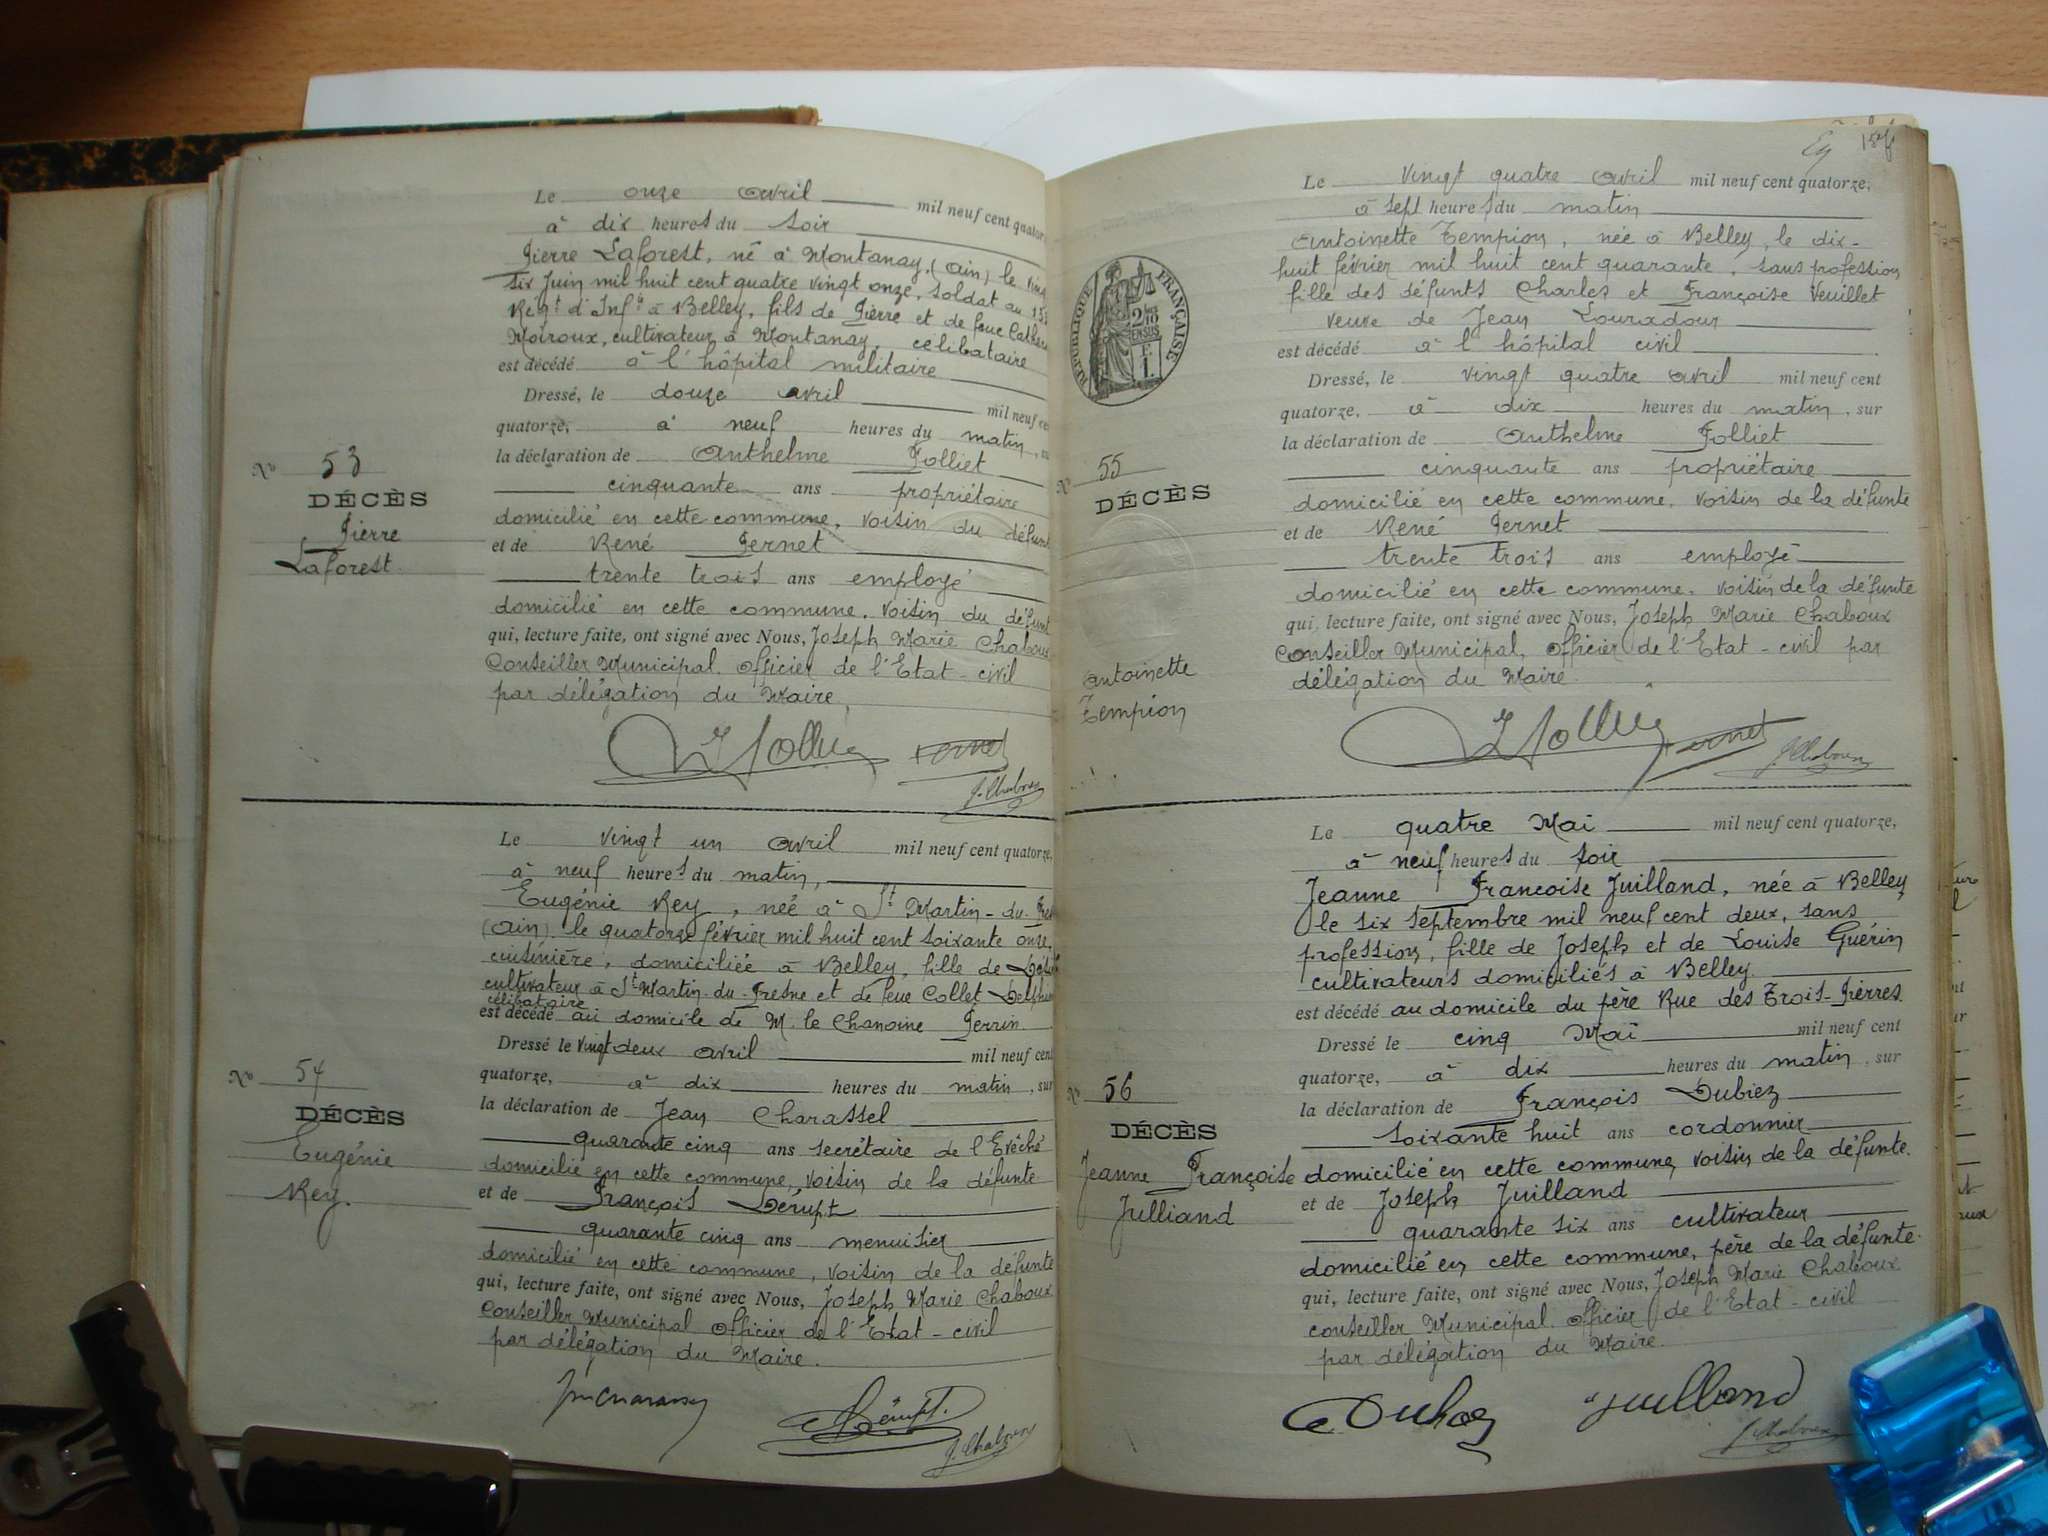 Le onze avril mil neuf cent quator
à dix heures du soir
Pierre Laforest, né à Montanay, (Ain) le vingt
six Juin mil huit cent quatre vingt onze, soldat au
Régt d'Infie à Belley, fils de Pierre et de feue Cathe
Moiroux, cultivateur à Montanay, célibataire
est décédé à l'hôpital militaire
Dressé, le douze avril mil neuf ce
quatorze, à neuf heures du matin,
la déclaration de Anthelme Folliet
cinquante ans propriétaire
domicilié en cette commune, voisin du défunt
et de René Pernet
trente trois ans employé
domicilié en cette commune, voisin du défunt
qui, lecture faite, ont signé avec Nous, Joseph Marie Chaboux
Conseiller Municipal. Officier de l'Etat-civil
par délégation du Maire,
Folliet Pernet
J. Chaboux
No 53
DÉCÈS
Pierre
Laforest.
Le vingt un avril mil neuf cent quatorze,
à neuf heures du matin,
Eugénie Rey, née à St Martin-du-Fres
(Ain) le quatorze février mil huit cent soixante onze,
cuisinière, domiciliée à Belley, fille de
cultivateur à St Martin-du-Fresne et de feue Collet Delphine
célibataire
est décédé au domicile de M. le Chanoine Perrin
Dressé le vingt deux avril mil neuf cent
quatorze, à dix heures du matin, sur
la déclaration de Jean Charassel
quarante cinq ans secrétaire de l'Evêché
domicilié en cette commune, voisin de la défunte
et de François Dérupt
quarante cinq ans menuisier
domicilié en cette commune, voisin de la défunte
qui, lecture faite, ont signé avec Nous, Joseph Marie Chaboux
Conseiller Municipal Officier de l'Etat-civil
par délégation du Maire.
J. Chaboux
No 54
DÉCÈS
Eugénie
Rey.
RÉPUBLIQUE FRANÇAISE
Le vingt quatre avril mil neuf cent quatorze,
à sept heures du matin
Antoinette Tempion, née à Belley, le dix-
huit février mil huit cent quarante, sans profession
fille des défunts Charles et Françoise Veuillet
veuve de Jean Louradour
est décédé à l'hôpital civil
Dressé, le vingt quatre avril mil neuf cent
quatorze, à dix heures du matin, sur
la déclaration de Anthelme Folliet
cinquante ans propriétaire
domicilié en cette commune, voisin de la défunte
et de René Pernet
trente trois ans employé
domicilié en cette commune, voisin de la défunte
qui, lecture faite, ont signé avec Nous, Joseph Marie Chaboux
Conseiller Municipal, Officier de l'Etat-civil par
délégation du Maire.
Folliet Pernet
J. Chaboux
No 55
DÉCÈS
Antoinette
Tempion
Le quatre Mai mil neuf cent quatorze,
à neuf heures du soir
Jeanne Françoise Juilland, née à Belley
le six septembre mil neuf cent deux, sans
profession, fille de Joseph et de Louise Guérin
cultivateurs domiciliés à Belley.
est décédé au domicile du père Rue des Trois-Pierres
Dressé le cinq Mai mil neuf cent
quatorze, à dix heures du matin, sur
la déclaration de François Dubiez
soixante huit ans cordonnier
domicilié en cette commune, voisin de la défunte.
et de Joseph Juilland
quarante six ans cultivateur
domicilié en cette commune, père de la défunte.
qui, lecture faite, ont signé avec Nous, Joseph Marie Chaboux
conseiller Municipal. Officier de l'Etat-civil
par délégation du Maire.
Juilland
J. Chaboux
No 56
DÉCÈS
Jeanne Françoise
Julliand